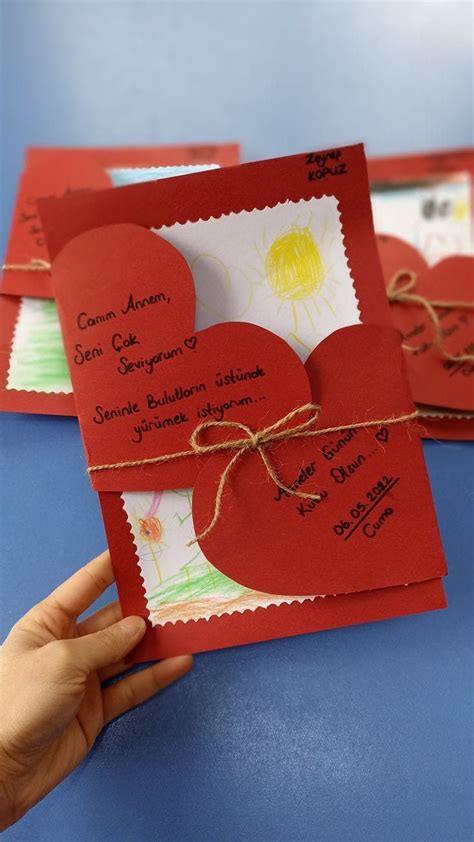 Zeynep
KOPUZ
Canım Annem,
Seni Çok
Seviyorum ♡
Seninle Bulutların üstünde
yürümek istiyorum...
Anneler Günün
Kutlu Olsun... ♡
06.05.2022
Cuma